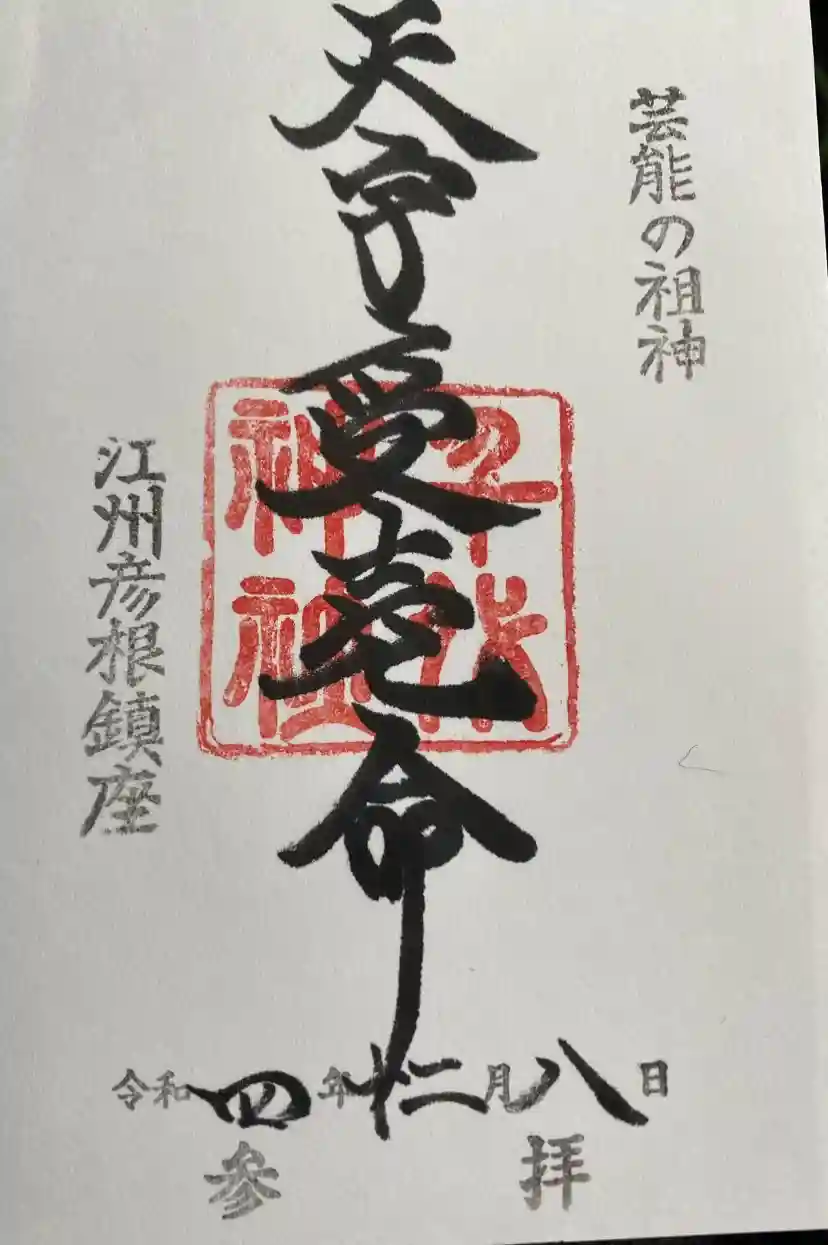 芸能の祖神
天宇受売命
千代
神社
江州彦根鎮座
令和四年十二月八日
参拝